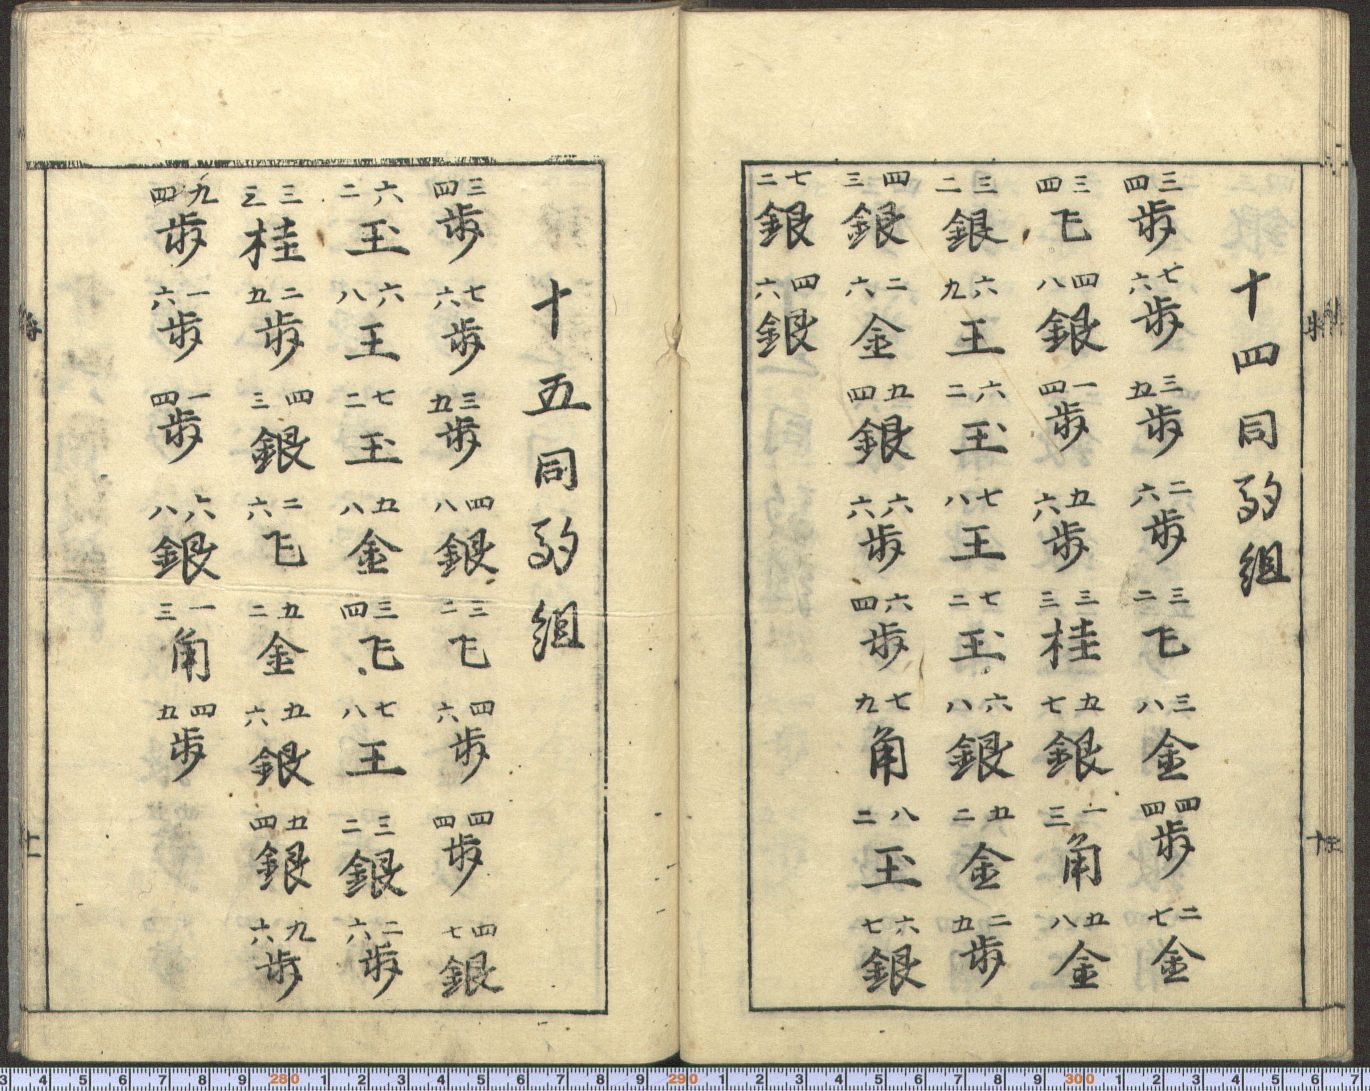 十四同駒組
三四歩 七六歩 三五歩 二六歩 三二飞 三八金 四四歩 二七金
三四飞 四八銀 一四歩 五六歩 三三桂 五七銀 一三角 五八金
三二銀 六九王 六二玉 七八王 七二玉 六八銀 五二金 二五歩
四三銀 二六金 五四銀 六六歩 六四歩 七九角 八二玉 六七銀
七二銀 四六銀
十五同駒組
三四歩 七六歩 三五歩 四八銀 三二飞 四六歩 四四歩 四七銀
六二玉 六八王 七二玉 五八金 三四飞 七八王 三二銀 二六歩
三三桂 二五歩 四三銀 二六飞 五二金 五六銀 五四銀 九六歩
九四歩 一六歩 一四歩 六八銀 一三角 四五歩